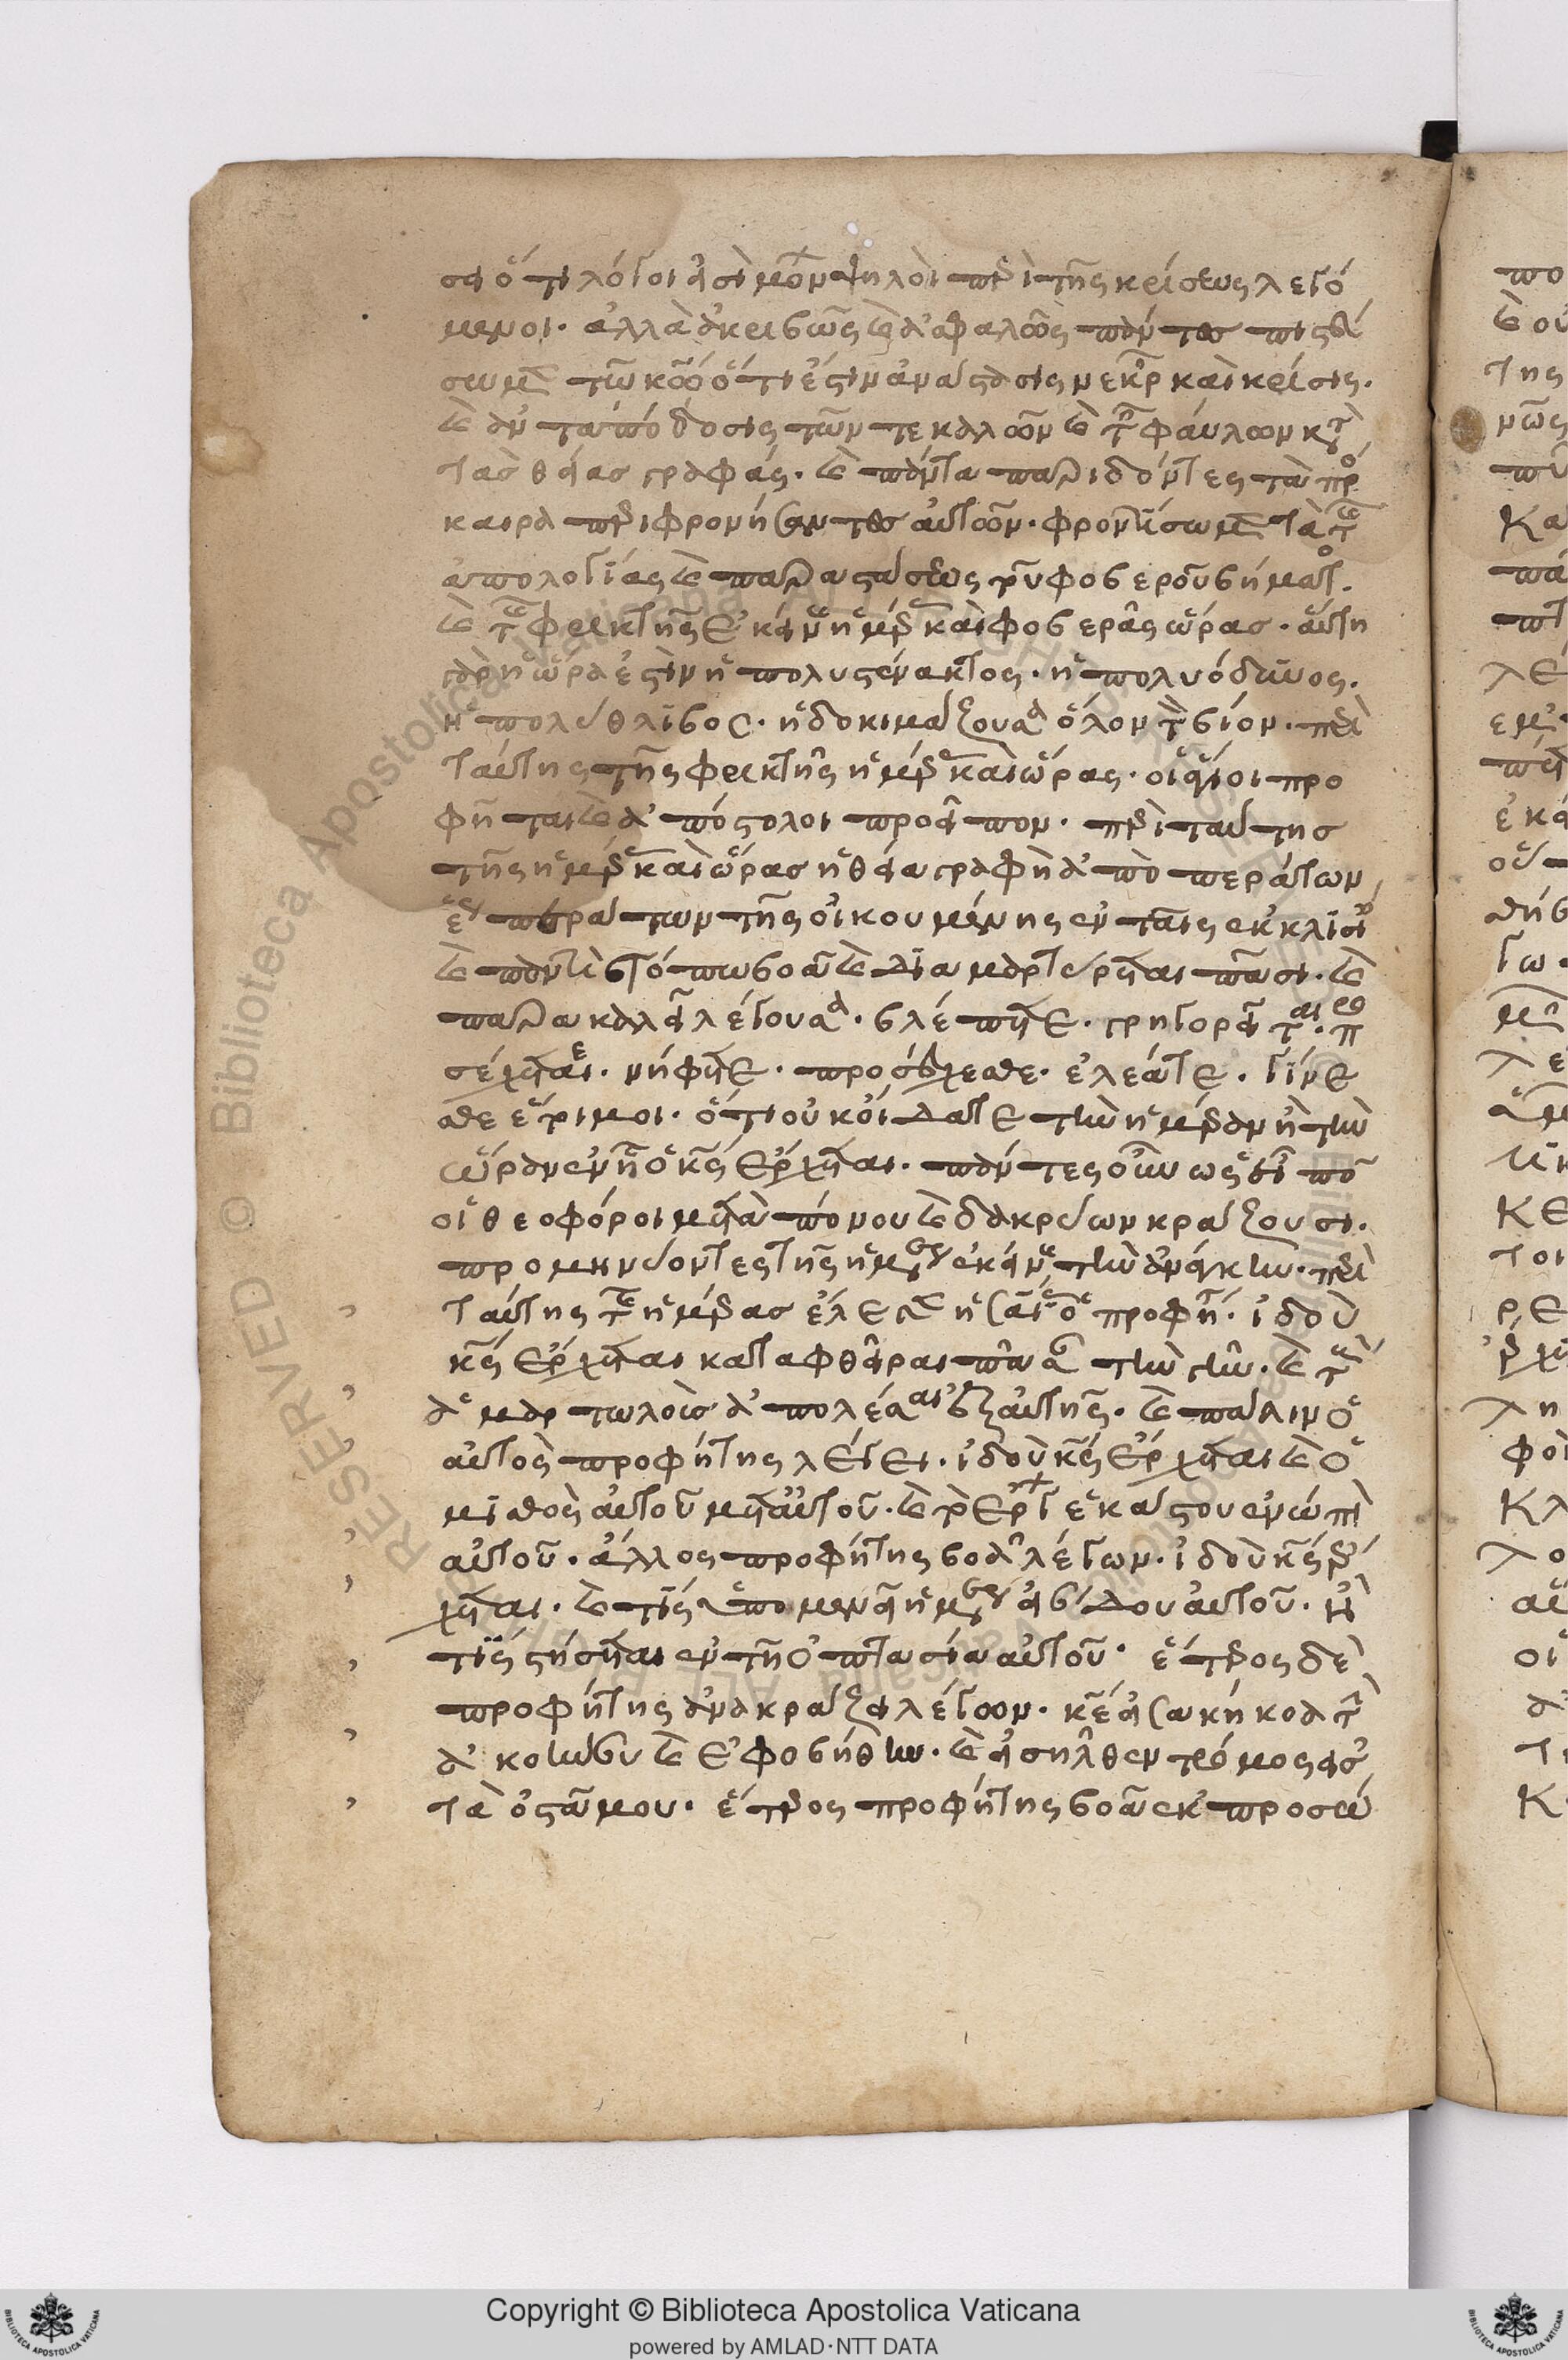 σει ὅτι λόγοι εἰσὶ μόνον ψιλοὶ περὶ τῆς κρίσεως λεγό
μενοι· ἀλλὰ ἀκριβῶς καὶ ἀσφαλῶς πάντες πιστεύ
σωμεν τῶ κῶ ὅτι ἐστιν ἀνάστασις νεκρῶν καὶ κρίσις·
καὶ ἀνταπόδοσις τῶν τε καλῶν καὶ τῶν φαύλων κατὰ
τὰς θείας γραφάς· καὶ πάντα παριδόντες τὰ πρόσ
καιρα περιφρονήσαντες αὐτῶν· φροντίσωμεν τὰ τῆς
ἀπολογίας καὶ παραστάσεως τοῦ φοβεροῦ βήματος·
καὶ τῆς φρικτῆς ἐκείνης ἡμέρας καὶ φοβερᾶς ὥρας· αὕτη
γὰρ ἡ ὥρα ἐστὶν ἡ πολυστένακτος· ἡ πολυόδυνος·
ἡ πολύθλιβος· ἡ δοκιμάζουσα ὅλον τὸν βίον· περὶ
ταύτης τῆς φρικτῆς ἡμέρας καὶ ὥρας· οἱ ἅγιοι προ
φῆται καὶ ἀπόστολοι προεῖπον· περὶ ταύτης
τῆς ἡμέρας καὶ ὥρας ἡ θεία γραφὴ ἀπὸ περάτων
ἕως περάτων τῆς οἰκουμένης ἐν ταῖς ἐκκλησίαις
καὶ παντὶ τόπω βοᾶ καὶ διαμαρτύρεται πᾶσι· καὶ
παρακαλεῖ λέγουσα· βλέπετε· γρηγορεῖται· προ
σέχεται· νήφετε· προσεύχεσθε· ἐλεᾶτε· γίνε
σθε ἕτοιμοι· ὅτι οὐκ οἴδατε τὴν ἡμέραν ἢ τὴν
ὥραν ἐν ἧ ὁ κς ἔρχεται· πάντες οὖν ὡς εἶπον
οἱ θεοφόροι μετὰ πόνου καὶ δακρύων κράζουσι·
προμηνύοντες τῆς ἡμέρας ἐκείνης τὴν ἀνάγκην· περὶ
ταύτης τῆς ἡμέρας ἔλεγεν ἡσαΐας ὁ προφήτης· ἰδοὺ
κς ἔρχεται καταφθεῖραι πᾶσαν τὴν γῆν· καὶ τοὺς
ἁμαρτωλοὺς ἀπολέσαι ἐξ αὐτῆς· καὶ πάλιν ὁ
αὐτὸς προφήτης λέγει· ἰδοὺ κς ἔρχεται καὶ ὁ
μισθὸς αὐτοῦ μετ' αὐτοῦ· καὶ τὸ ἔργον ἑκάστου ἐνώπιον
αὐτοῦ· ἄλλος προφήτης βοᾶ λέγων· ἰδοὺ κς ἔρ
χεται· καὶ τίς ὑπομενεῖ ἡμέραν εἰσόδου αὐτοῦ· ἢ
τίς στήσεται ἐν τῆ ὀπτασία αὐτοῦ· ἕτερος δὲ
προφήτης ἀνακράζει λέγων· κε εἰσακήκοα τὴν
ἀκοήν σου καὶ ἐφοβήθην· καὶ εἰσῆλθεν τρόμος εἰς
τὰ ὀστᾶ μου· ἕτερος προφήτης βοᾶ ἐκ προσώ
RESERVED © Biblioteca Apostolica Vaticana
Copyright © Biblioteca Apostolica Vaticana
powered by AMLAD·NTT DATA